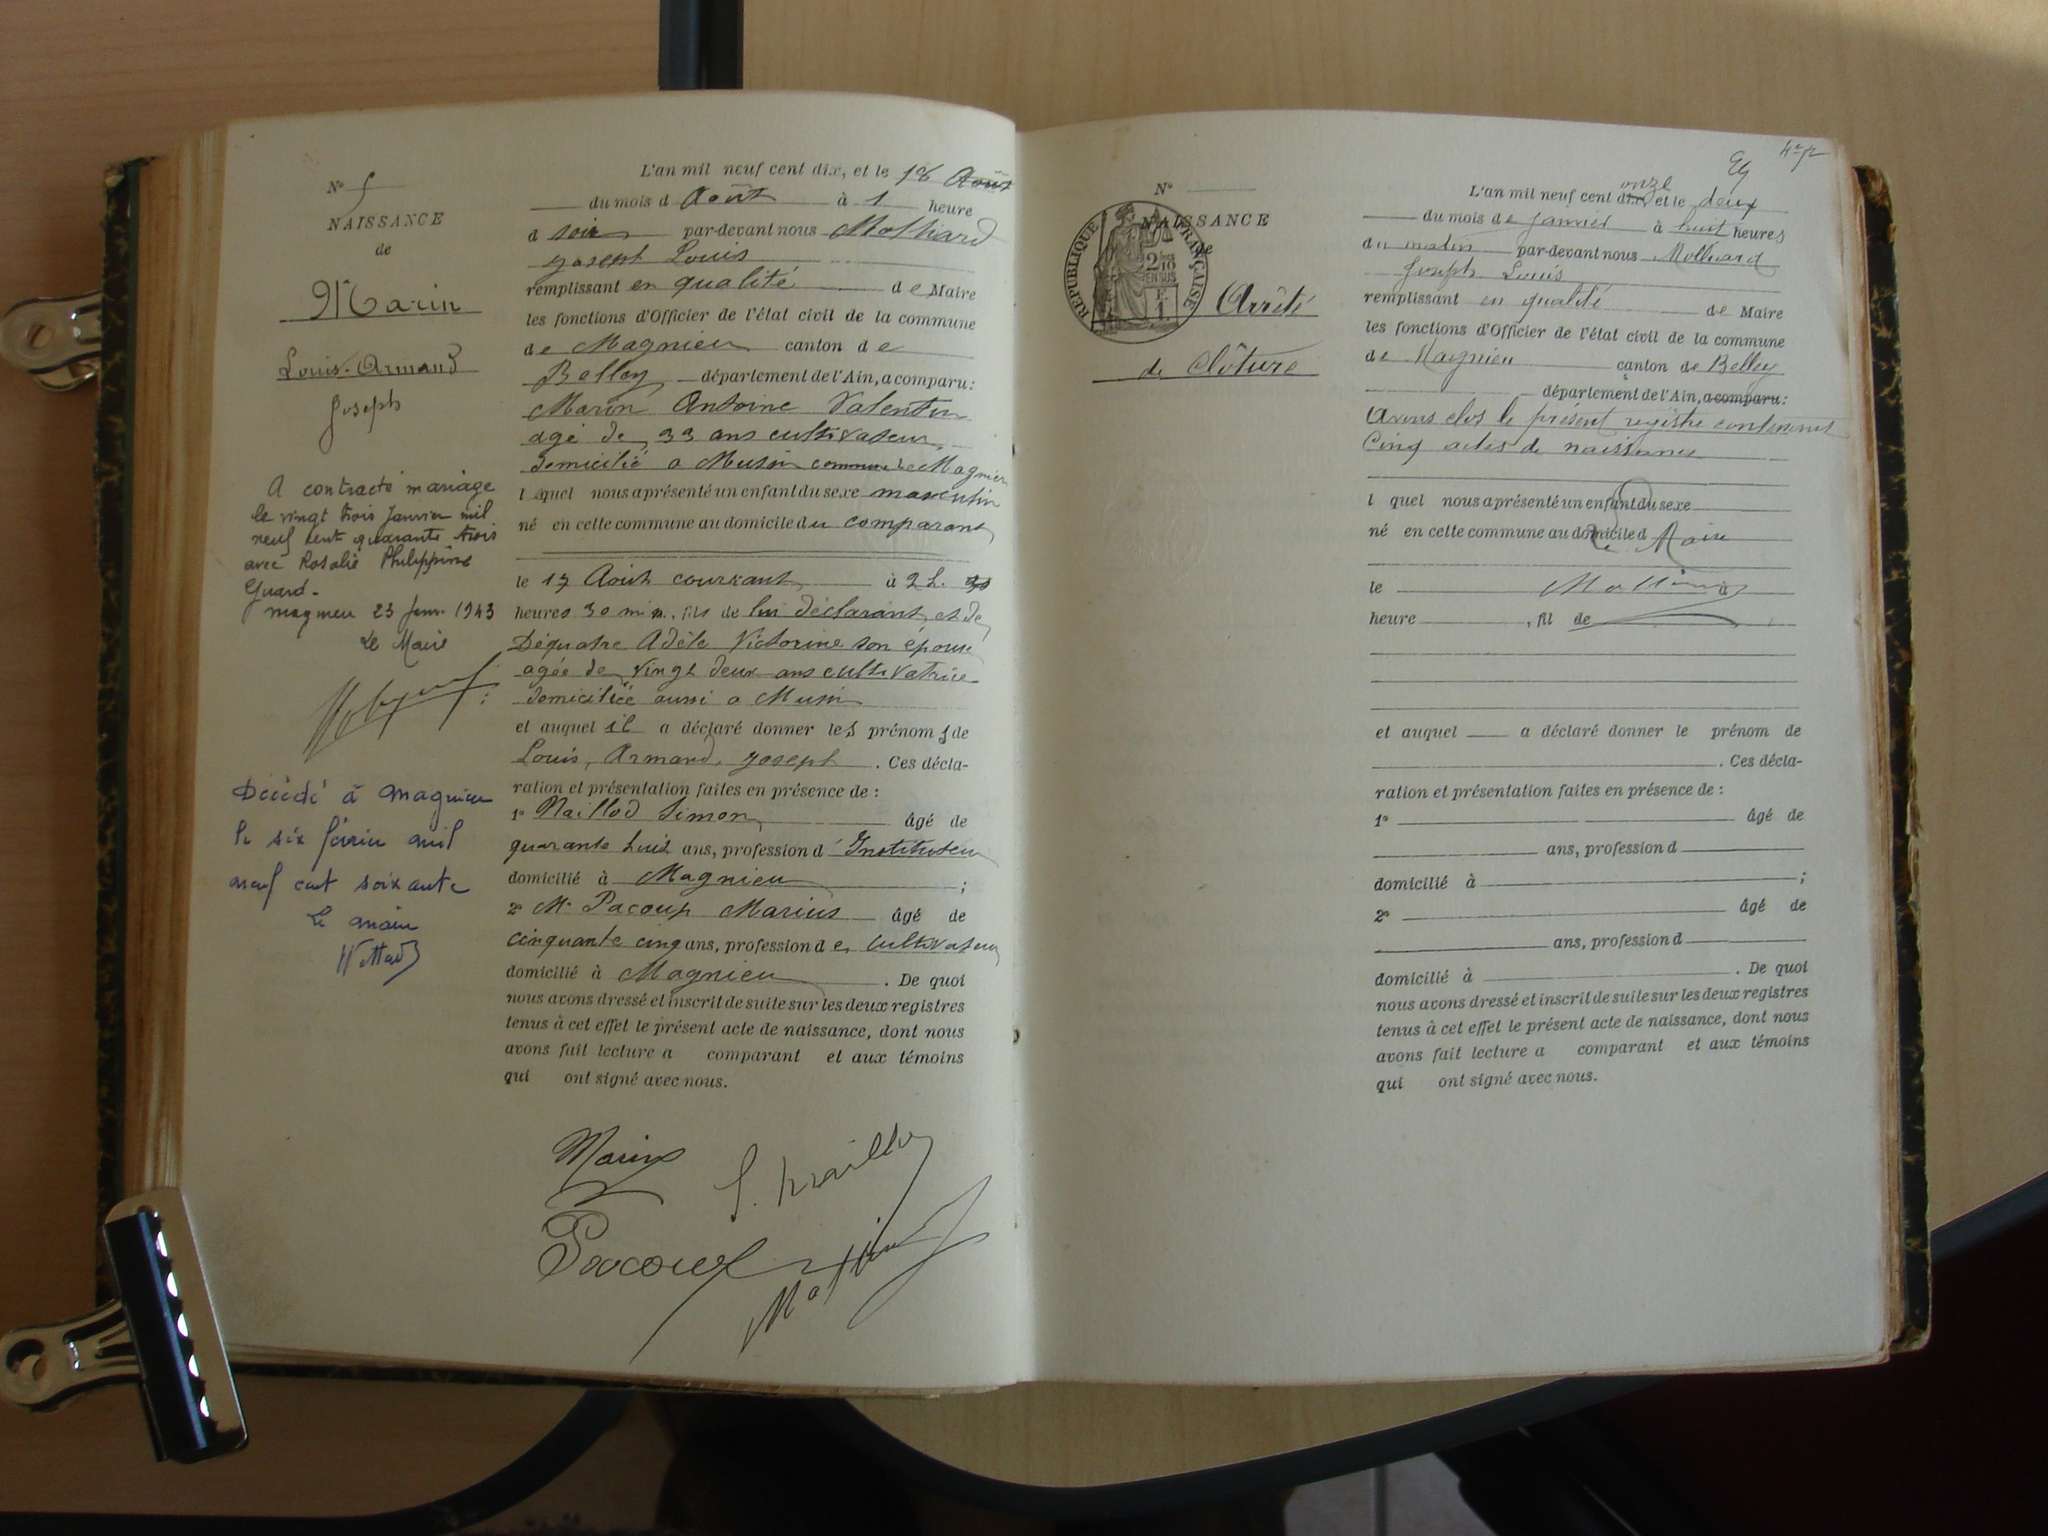 N° 5
NAISSANCE
de
Marin
Louis-Armand
Joseph
A contracté mariage
le vingt trois Janvier mil
neuf cent quarante trois
avec Rosalie Philippine
magnieu 23 Janv. 1943
Le Maire
Décédé à Magnieu
le six février mil
neuf cent soixante
Le maire
L'an mil neuf cent dix, et le 18 Août
du mois d Août à 1 heure
d soir par-devant nous Molliard
Joseph Louis
remplissant en qualité de Maire
les fonctions d'Officier de l'état civil de la commune
de Magnieu canton de
Belley département de l'Ain, a comparu:
Marin Antoine Valentin
agé de 33 ans cultivateur
domicilié a Musin commune de Magnieu
l quel nous a présenté un enfant du sexe masculin
né en cette commune au domicile du comparant
le 17 Août courrant à 2 h.
heures 30 min, fils de lui déclarant et de
Déquatre Adèle Victorine son épouse
agée de vingt deux ans cultivatrice
domiciliée aussi a Musin
et auquel il a déclaré donner les prénoms de
Louis, Armand, Joseph. Ces décla-
ration et présentation faites en présence de :
1° Maillod Simon, âgé de
quarante huit ans, profession d'Instituteur
domicilié à Magnieu ;
2° Mr Pacoup Marius âgé de
cinquante cinq ans, profession de cultivateur
domicilié à Magnieu. De quoi
nous avons dressé et inscrit de suite sur les deux registres
tenus à cet effet le présent acte de naissance, dont nous
avons fait lecture a comparant et aux témoins
qui ont signé avec nous.
Marin
N°
NAISSANCE
de
RÉPUBLIQUE FRANÇAISE
Arrêté
de clôture
L'an mil neuf cent dix onze et le deux
du mois de janvier à huit heures
du matin par-devant nous Molliard
Joseph Louis
remplissant en qualité de Maire
les fonctions d'Officier de l'état civil de la commune
de Magnieu canton de Belley
département de l'Ain, a comparu:
Avons clos le présent registre contenant
Cinq actes de naissance
l quel nous a présenté un enfant du sexe
né en cette commune au domicile d
Le Maire
le à
heure , fil de
et auquel a déclaré donner le prénom de
. Ces décla-
ration et présentation faites en présence de :
1° âgé de
ans, profession d
domicilié à ;
2° âgé de
ans, profession d
domicilié à . De quoi
nous avons dressé et inscrit de suite sur les deux registres
tenus à cet effet le présent acte de naissance, dont nous
avons fait lecture a comparant et aux témoins
qui ont signé avec nous.